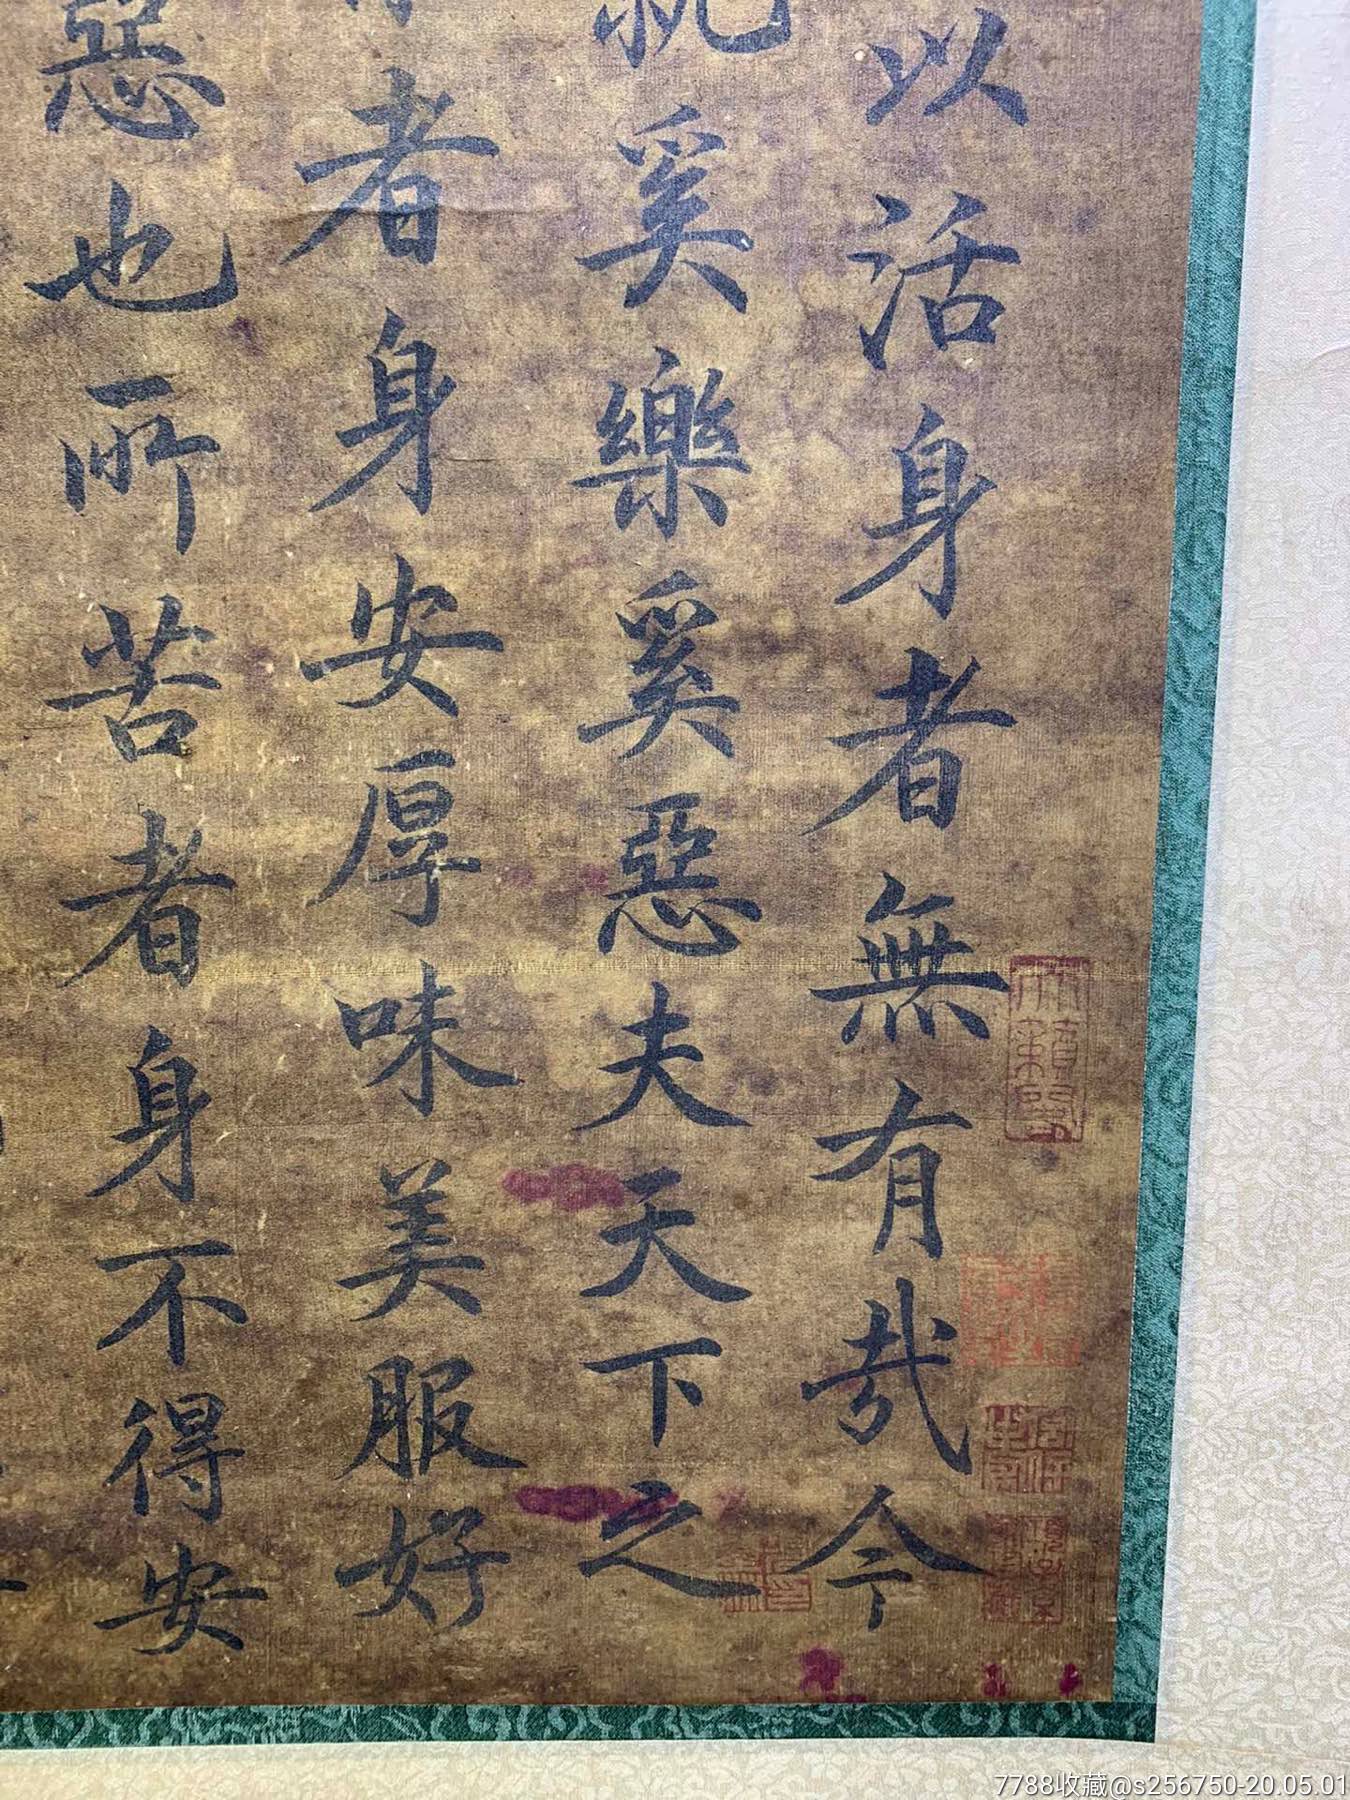 以活身者無有哉今
就奚樂奚惡夫天下之
者身安厚味美服好
惡也所苦者身不得安
7788收藏@s256750-20.05.01